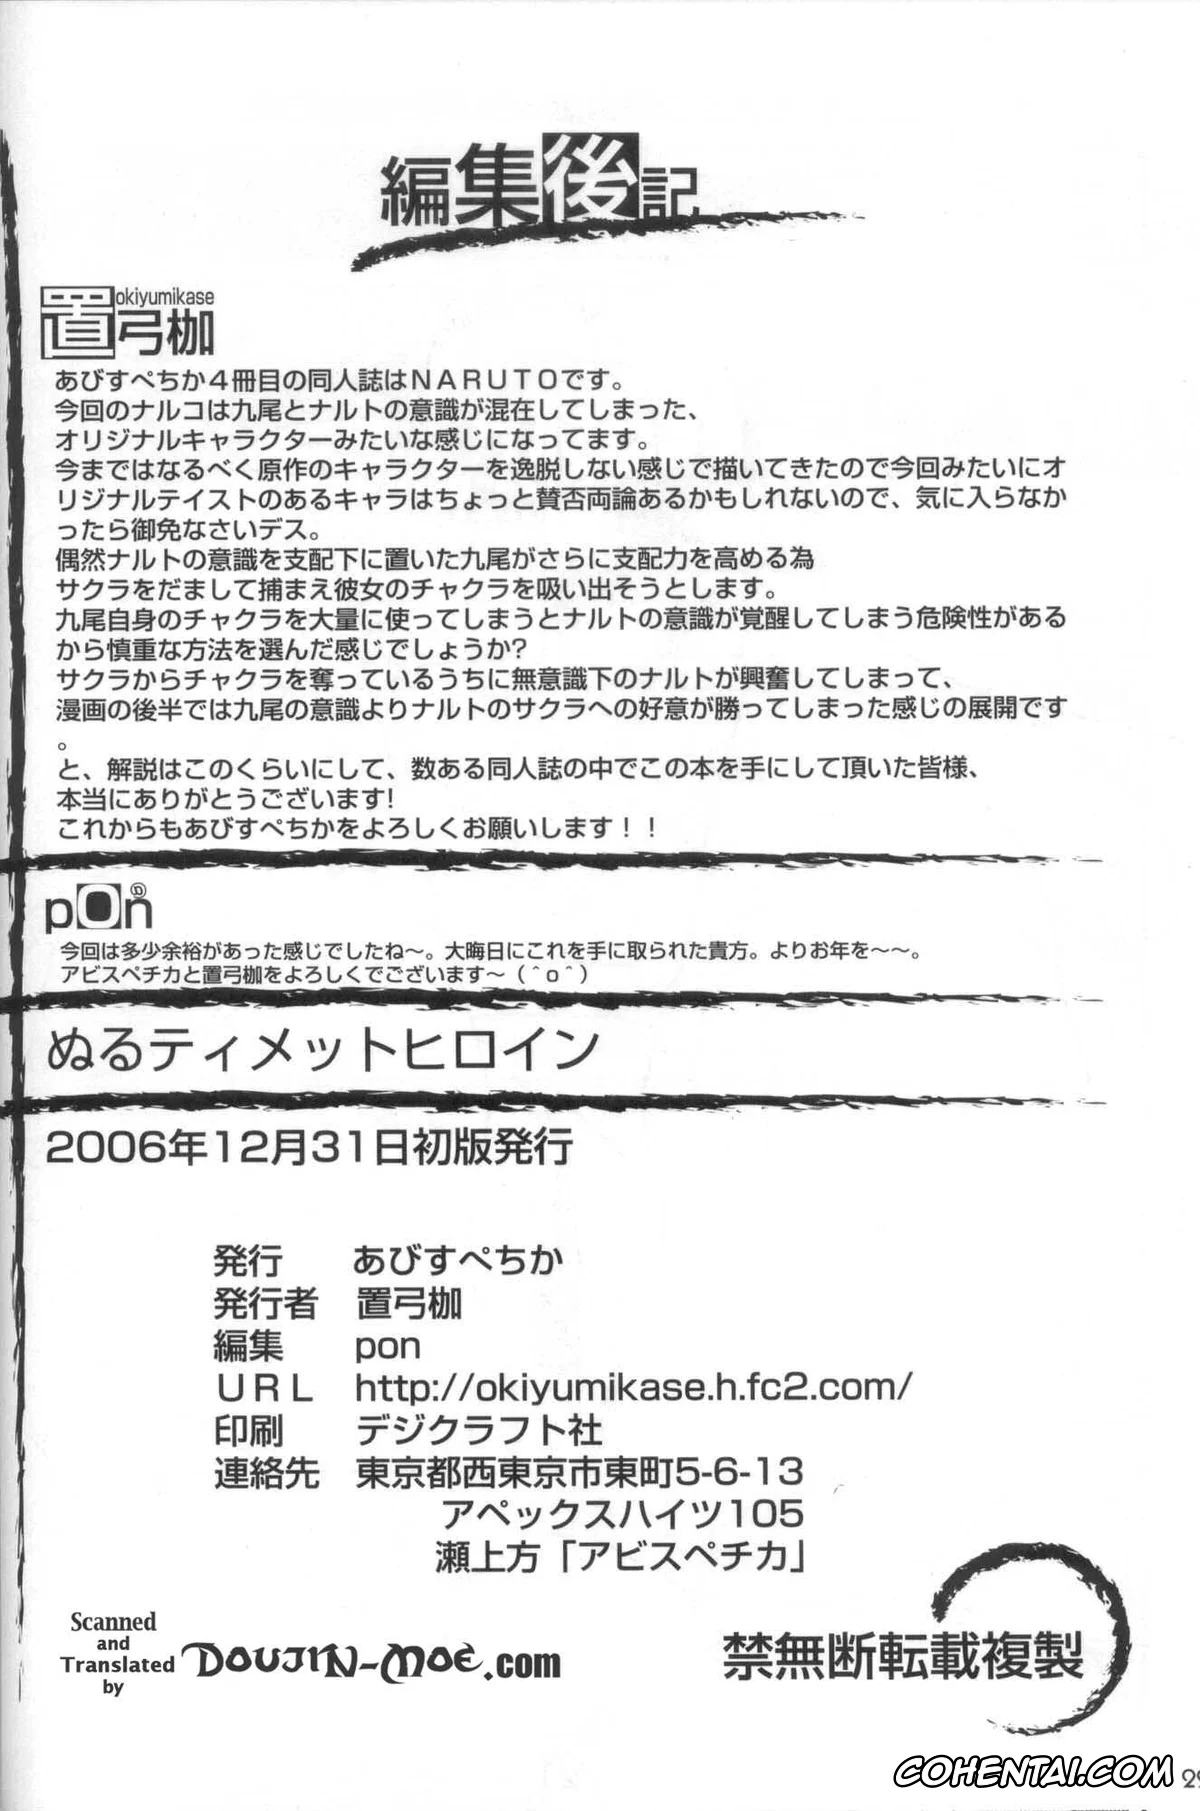 編集後記
okiyumikase
置弓枷
あびすぺちか４冊目の同人誌はＮＡＲＵＴＯです。
今回のナルコは九尾とナルトの意識が混在してしまった、
オリジナルキャラクターみたいな感じになってます。
今まではなるべく原作のキャラクターを逸脱しない感じで描いてきたので今回みたいにオ
リジナルテイストのあるキャラはちょっと賛否両論あるかもしれないので、気に入らなか
ったら御免なさいデス。
偶然ナルトの意識を支配下に置いた九尾がさらに支配力を高める為
サクラをだまして捕まえ彼女のチャクラを吸い出そうとします。
九尾自身のチャクラを大量に使ってしまうとナルトの意識が覚醒してしまう危険性がある
から慎重な方法を選んだ感じでしょうか?
サクラからチャクラを奪っているうちに無意識下のナルトが興奮してしまって、
漫画の後半では九尾の意識よりナルトのサクラへの好意が勝ってしまった感じの展開です
。
と、解説はこのくらいにして、数ある同人誌の中でこの本を手にして頂いた皆様、
本当にありがとうございます!
これからもあびすぺちかをよろしくお願いします！！
pOn
今回は多少余裕があった感じでしたね〜。大晦日にこれを手に取られた貴方。よりお年を〜〜。
アビスペチカと置弓枷をよろしくでございます〜（＾ｏ＾）
ぬるティメットヒロイン
2006年12月31日初版発行
発行 あびすぺちか
発行者 置弓枷
編集 pon
ＵＲＬ http://okiyumikase.h.fc2.com/
印刷 デジクラフト社
連絡先 東京都西東京市東町5-6-13
アペックスハイツ105
瀬上方「アビスペチカ」
Scanned
and
Translated
by
DOUJIN-MOE.com
禁無断転載複製
COHENTAI.COM